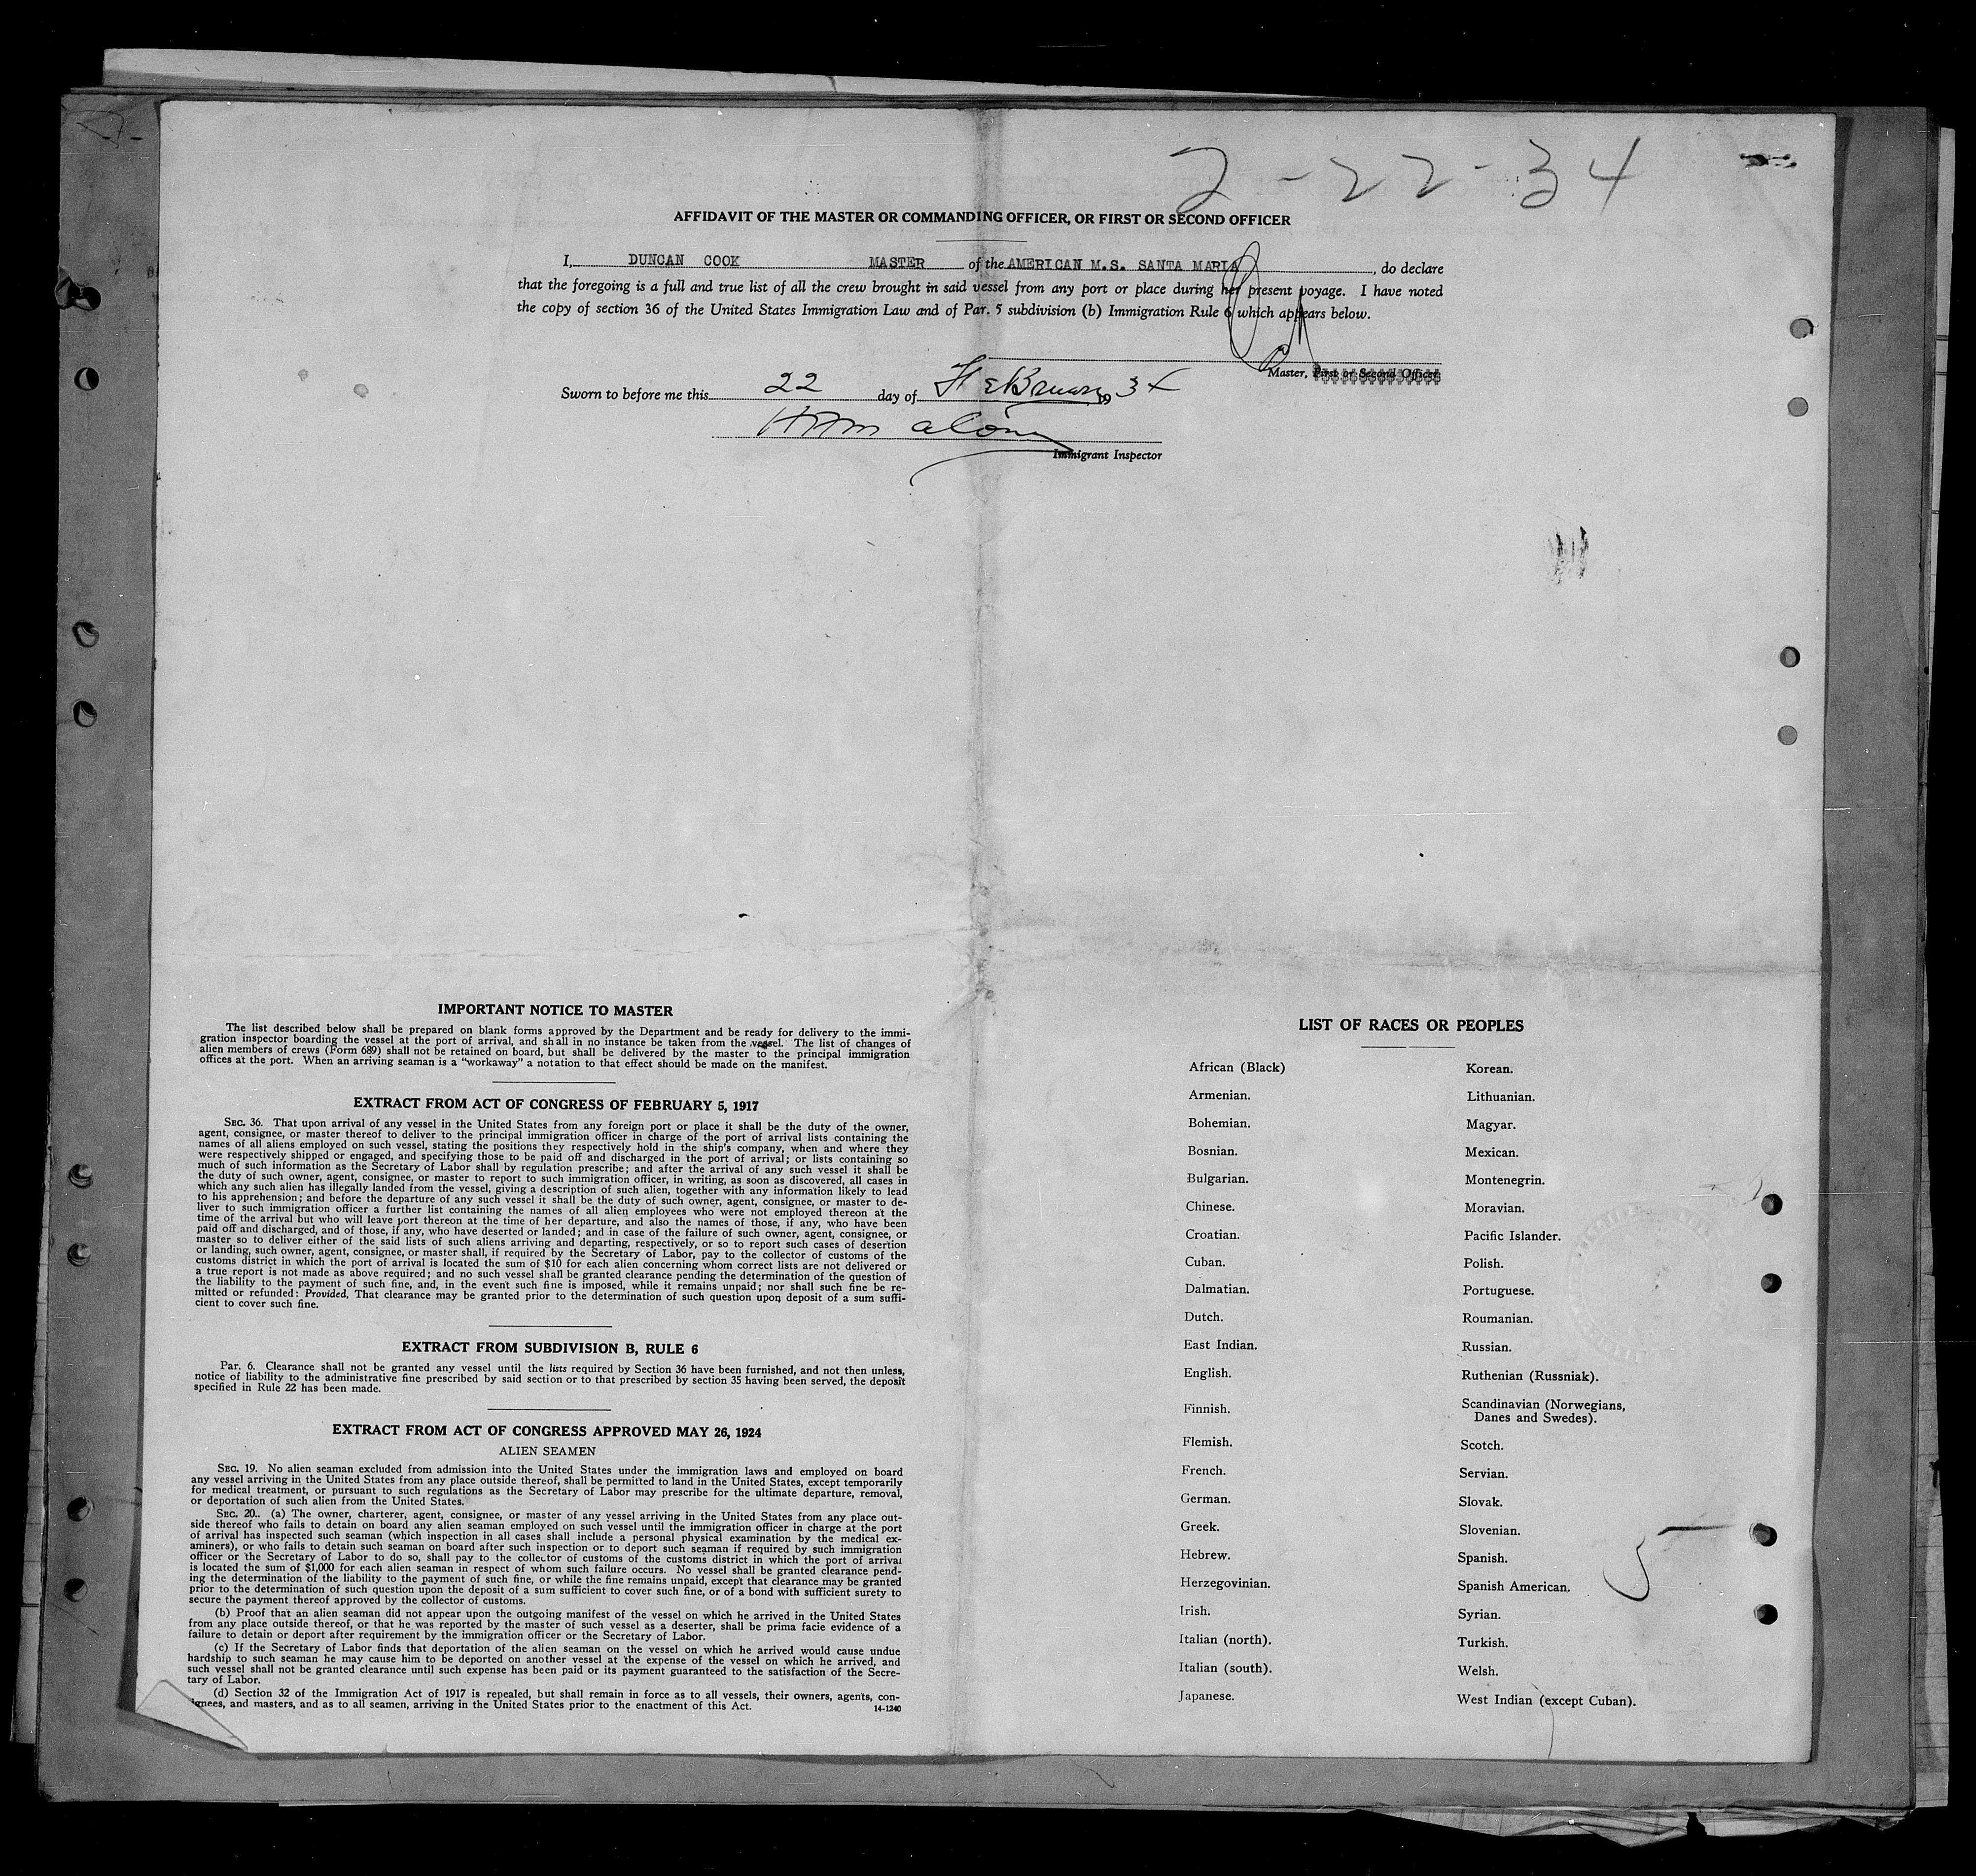 2-22-34
AFFIDAVIT OF THE MASTER OR COMMANDING OFFICER, OR FIRST OR SECOND OFFICER
I, DUNCAN COOK MASTER of the AMERICAN M.S. SANTA MARIA, do declare
that the foregoing is a full and true list of all the crew brought in said vessel from any port or place during her present voyage. I have noted
the copy of section 36 of the United States Immigration Law and of Par. 5 subdivision (b) Immigration Rule 6 which appears below.
Master, First or Second Officer
Sworn to before me this 22 day of February 1934
Immigrant Inspector
IMPORTANT NOTICE TO MASTER
The list described below shall be prepared on blank forms approved by the Department and be ready for delivery to the immi-
gration inspector boarding the vessel at the port of arrival, and shall in no instance be taken from the vessel. The list of changes of
alien members of crews (Form 689) shall not be retained on board, but shall be delivered by the master to the principal immigration
offices at the port. When an arriving seaman is a "workaway" a notation to that effect should be made on the manifest.
EXTRACT FROM ACT OF CONGRESS OF FEBRUARY 5, 1917
SEC. 36. That upon arrival of any vessel in the United States from any foreign port or place it shall be the duty of the owner,
agent, consignee, or master thereof to deliver to the principal immigration officer in charge of the port of arrival lists containing the
names of all aliens employed on such vessel, stating the positions they respectively hold in the ship's company, when and where they
were respectively shipped or engaged, and specifying those to be paid off and discharged in the port of arrival; or lists containing so
much of such information as the Secretary of Labor shall by regulation prescribe; and after the arrival of any such vessel it shall be
the duty of such owner, agent, consignee, or master to report to such immigration officer, in writing, as soon as discovered, all cases in
which any such alien has illegally landed from the vessel, giving a description of such alien, together with any information likely to lead
to his apprehension; and before the departure of any such vessel it shall be the duty of such owner, agent, consignee, or master to de-
liver to such immigration officer a further list containing the names of all alien employees who were not employed thereon at the
time of the arrival but who will leave port thereon at the time of her departure, and also the names of those, if any, who have been
paid off and discharged, and of those, if any, who have deserted or landed; and in case of the failure of such owner, agent, consignee, or
master so to deliver either of the said lists of such aliens arriving and departing, respectively, or so to report such cases of desertion
or landing, such owner, agent, consignee, or master shall, if required by the Secretary of Labor, pay to the collector of customs of the
customs district in which the port of arrival is located the sum of $10 for each alien concerning whom correct lists are not delivered or
a true report is not made as above required; and no such vessel shall be granted clearance pending the determination of the question of
the liability to the payment of such fine, and, in the event such fine is imposed, while it remains unpaid; nor shall such fine be re-
mitted or refunded: Provided, That clearance may be granted prior to the determination of such question upon deposit of a sum suffi-
cient to cover such fine.
EXTRACT FROM SUBDIVISION B, RULE 6
Par. 6. Clearance shall not be granted any vessel until the lists required by Section 36 have been furnished, and not then unless,
notice of liability to the administrative fine prescribed by said section or to that prescribed by section 35 having been served, the deposit
specified in Rule 22 has been made.
EXTRACT FROM ACT OF CONGRESS APPROVED MAY 26, 1924
ALIEN SEAMEN
SEC. 19. No alien seaman excluded from admission into the United States under the immigration laws and employed on board
any vessel arriving in the United States from any place outside thereof, shall be permitted to land in the United States, except temporarily
for medical treatment, or pursuant to such regulations as the Secretary of Labor may prescribe for the ultimate departure, removal,
or deportation of such alien from the United States.
SEC. 20.. (a) The owner, charterer, agent, consignee, or master of any vessel arriving in the United States from any place out-
side thereof who fails to detain on board any alien seaman employed on such vessel until the immigration officer in charge at the port
of arrival has inspected such seaman (which inspection in all cases shall include a personal physical examination by the medical ex-
aminers), or who fails to detain such seaman on board after such inspection or to deport such seaman if required by such immigration
officer or the Secretary of Labor to do so, shall pay to the collector of customs of the customs district in which the port of arrival
is located the sum of $1,000 for each alien seaman in respect of whom such failure occurs. No vessel shall be granted clearance pend-
ing the determination of the liability to the payment of such fine, or while the fine remains unpaid, except that clearance may be granted
prior to the determination of such question upon the deposit of a sum sufficient to cover such fine, or of a bond with sufficient surety to
secure the payment thereof approved by the collector of customs.
(b) Proof that an alien seaman did not appear upon the outgoing manifest of the vessel on which he arrived in the United States
from any place outside thereof, or that he was reported by the master of such vessel as a deserter, shall be prima facie evidence of a
failure to detain or deport after requirement by the immigration officer or the Secretary of Labor.
(c) If the Secretary of Labor finds that deportation of the alien seaman on the vessel on which he arrived would cause undue
hardship to such seaman he may cause him to be deported on another vessel at the expense of the vessel on which he arrived, and
such vessel shall not be granted clearance until such expense has been paid or its payment guaranteed to the satisfaction of the Secre-
tary of Labor.
(d) Section 32 of the Immigration Act of 1917 is repealed, but shall remain in force as to all vessels, their owners, agents, con-
ignees, and masters, and as to all seamen, arriving in the United States prior to the enactment of this Act.
14-1240
LIST OF RACES OR PEOPLES
African (Black)
Armenian.
Bohemian.
Bosnian.
Bulgarian.
Chinese.
Croatian.
Cuban.
Dalmatian.
Dutch.
East Indian.
English.
Finnish.
Flemish.
French.
German.
Greek.
Hebrew.
Herzegovinian.
Irish.
Italian (north).
Italian (south).
Japanese.
Korean.
Lithuanian.
Magyar.
Mexican.
Montenegrin.
Moravian.
Pacific Islander.
Polish.
Portuguese.
Roumanian.
Russian.
Ruthenian (Russniak).
Scandinavian (Norwegians,
Danes and Swedes).
Scotch.
Servian.
Slovak.
Slovenian.
Spanish.
Spanish American.
Syrian.
Turkish.
Welsh.
West Indian (except Cuban).
5